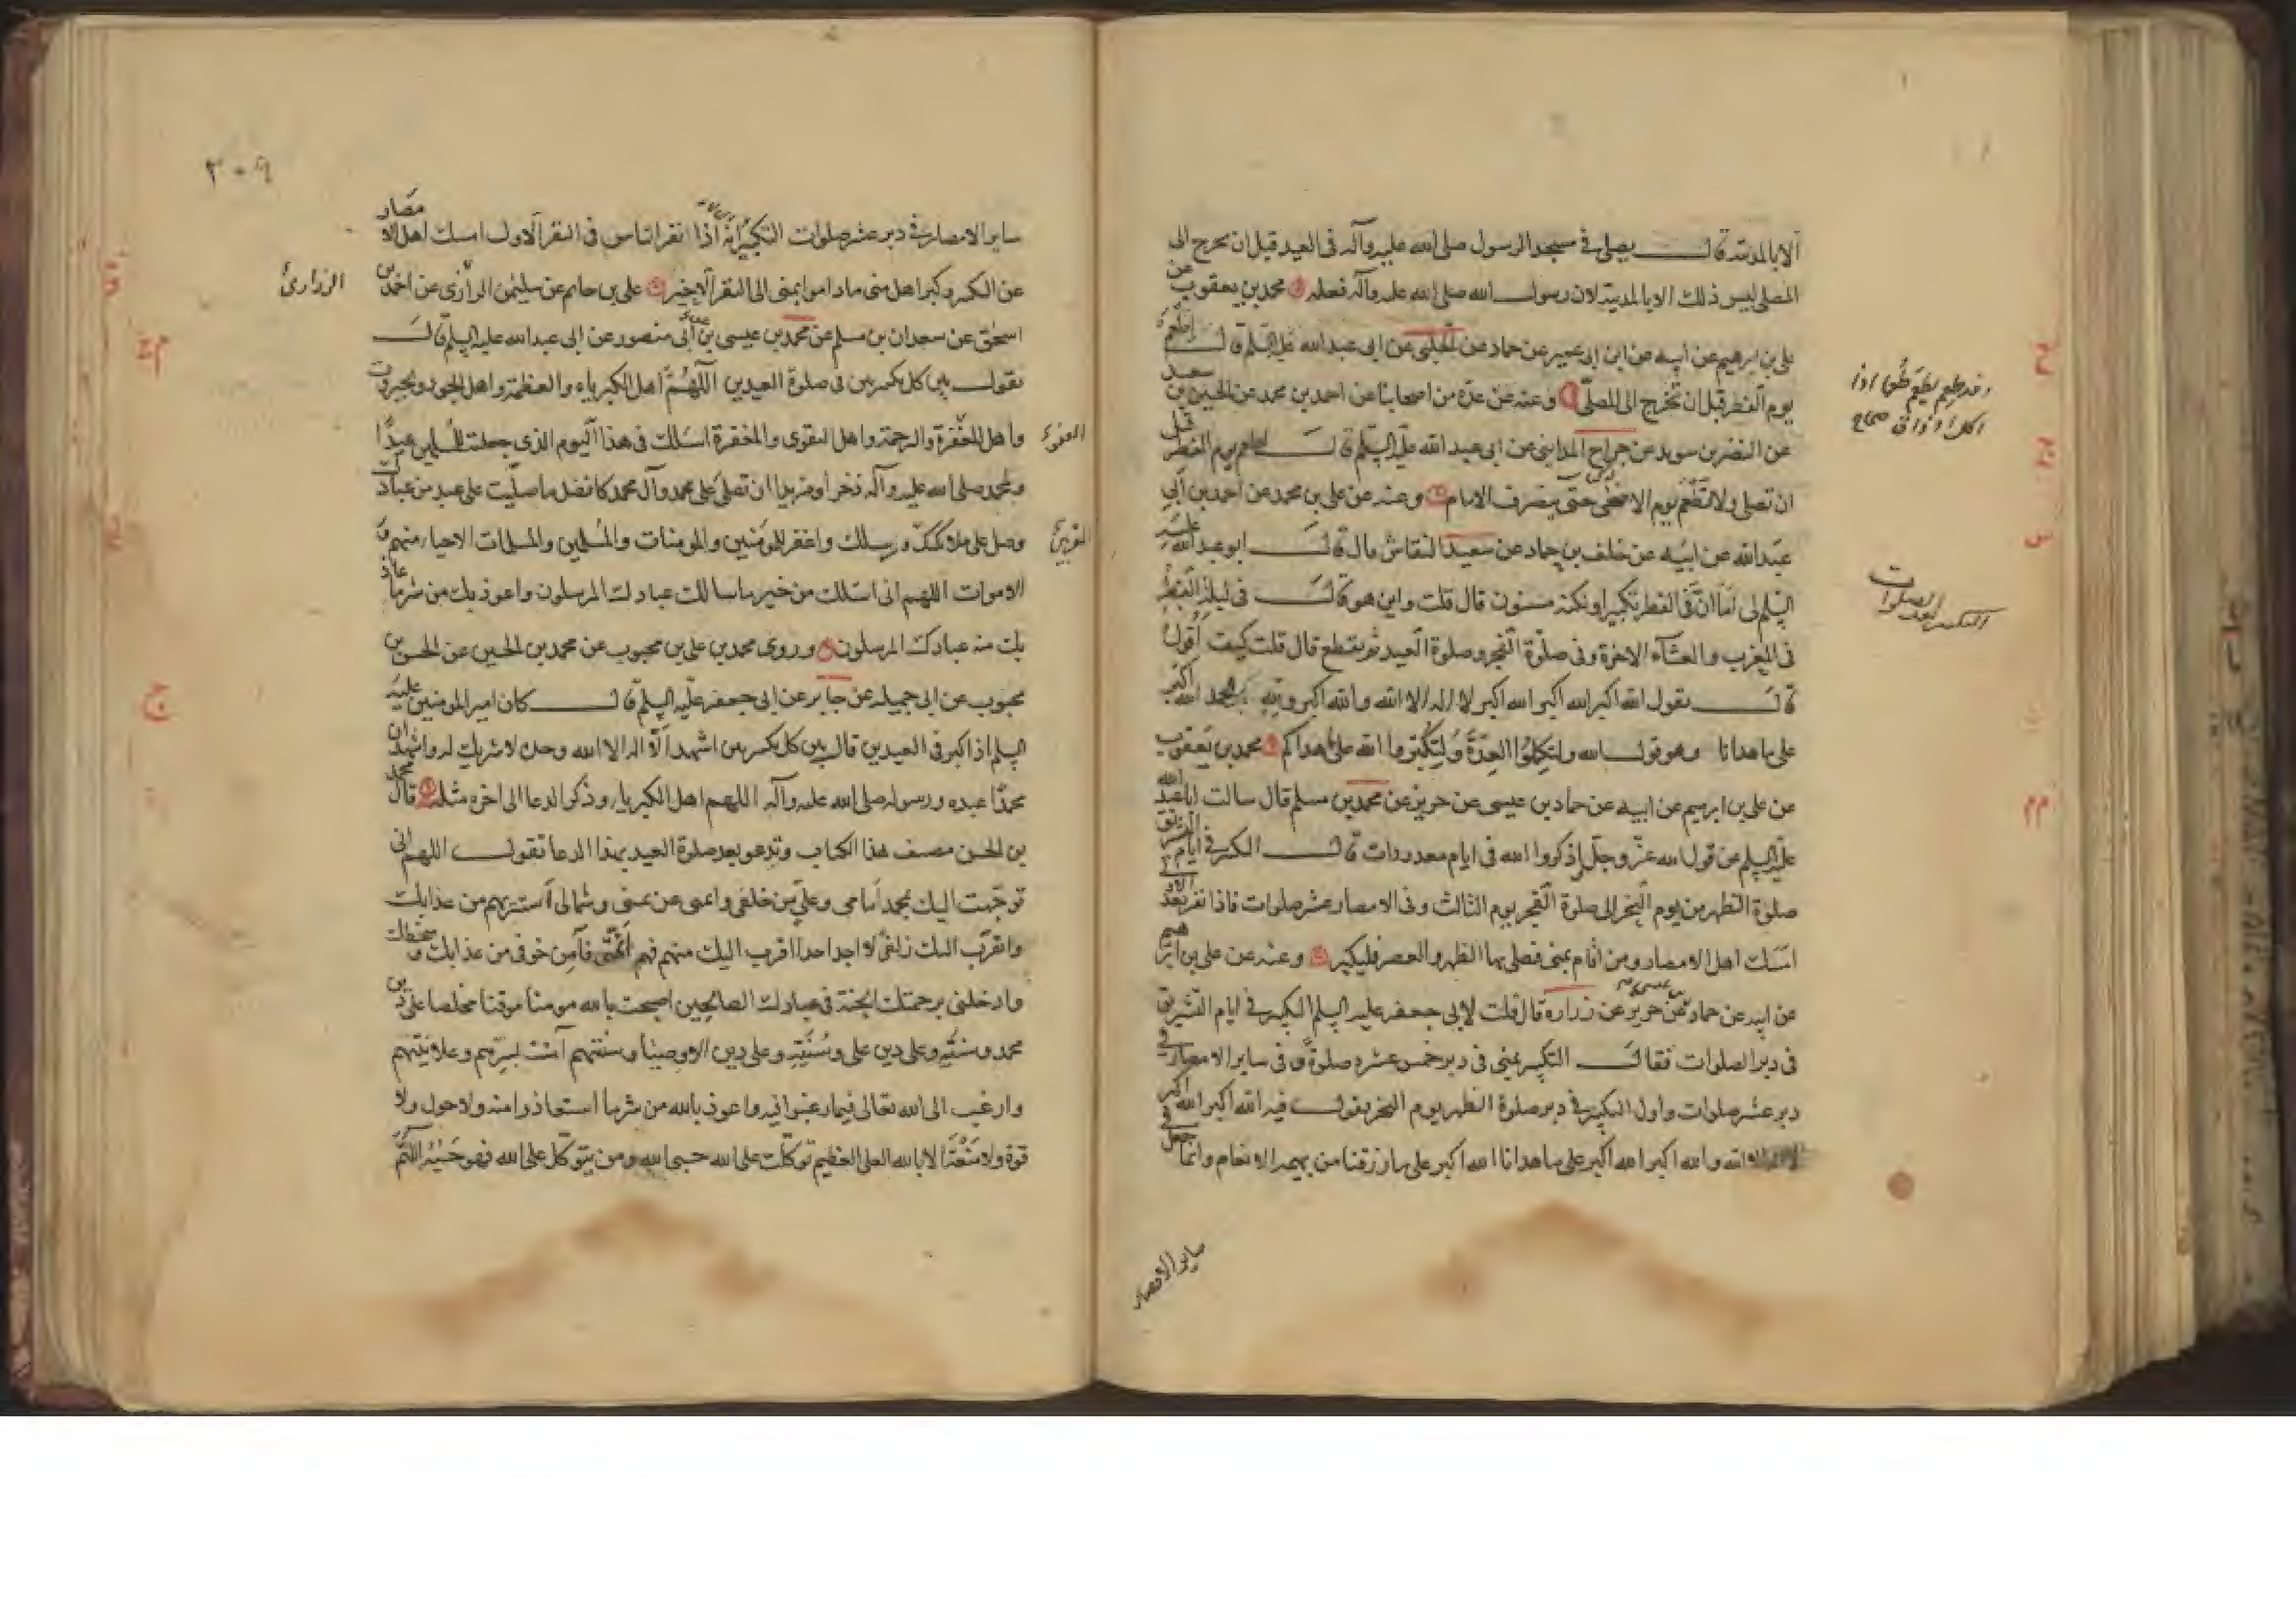 الا بالمدينة قال يصلى فى مسجد الرسول صلى الله عليه وآله فى العيد قبل ان يخرج الى
المصلى ليس ذلك الا بالمدينة لان رسول الله صلى الله عليه وآله فعله محمد بن يعقوب عن
على بن ابرهيم عن ابيه عن ابن ابى عمير عن حماد عن الحلبى عن ابى عبد الله عليه السلم قال اطعم
يوم الفطر قبل ان تخرج الى المصلى وعنه عن عدة من اصحابنا عن احمد بن محمد عن الحسين بن سعيد
عن النضر بن سويد عن جراح المداينى عن ابى عبد الله عليه السلم قال ليطعم يوم الفطر قبل
ان تصلى ولا تطعم يوم الاضحى حتى ينصرف الامام وعنه عن على بن محمد عن احمد بن ابى
عبد الله عن ابيه عن خلف بن حماد عن سعيد النقاش قال قال ابو عبد الله عليه
السلم لى اما ان فى الفطر تكبيرا ولكنه مسنون قال قلت واين هو قال فى ليلة الفطر
فى المغرب والعشاء الاخرة وفى صلوة الفجر وصلوة العيد ثم يقطع قال قلت كيف اقول
قال تقول الله اكبر الله اكبر الله اكبر لا اله الا الله والله اكبر ولله الحمد الله اكبر
على ما هدانا وهو قول الله ولتكملوا العدة ولتكبروا الله على ما هداكم محمد بن يعقوب
عن على بن ابرهيم عن ابيه عن حماد بن عيسى عن حريز عن محمد بن مسلم قال سالت ابا عبد الله
عليه السلم عن قول الله عز وجل اذكروا الله فى ايام معدودات قال التكبير فى ايام التشريق
صلوة الظهر من يوم النحر الى صلوة الفجر يوم الثالث وفى الامصار عشر صلوات فاذا نفر بعد الاولى
امسك اهل الامصار ومن اقام بمنى فصلى بها الظهر والعصر فليكبر وعنه عن على بن ابرهيم
عن ابيه عن حماد بن عيسى عن حريز عن زرارة قال قلت لابى جعفر عليه السلم التكبير فى ايام التشريق
فى دبر الصلوات فقال التكبير بمنى فى دبر خمس عشرة صلوة وفى ساير الامصار فى
دبر عشر صلوات واول التكبير فى دبر صلوة الظهر يوم النحر يقول فيه الله اكبر الله اكبر
لا اله الا الله والله اكبر الله اكبر على ما هدانا الله اكبر على ما رزقنا من بهيمة الانعام وانما جعل فى
ساير الامصار
وقد طعم يطعم طعما اذا
اكل او ذاق صحاح
التكبير بعد الصلوات
٢٠٩
ساير الامصار فى دبر عشر صلوات التكبير انه اذا نفر الناس فى النفر الاول امسك اهل الامصار
عن التكبير وكبر اهل منى ما داموا بمنى الى النفر الاخير على بن حاتم عن سليمن الرازى عن احمد بن
الزرارى
اسحق عن سعدان بن مسلم عن محمد بن عيسى بن ابى منصور عن ابى عبد الله عليه السلم قال
تقول بين كل تكبيرتين فى صلوة العيدين اللهم اهل الكبرياء والعظمة واهل الجود والجبروت
واهل المغفرة والرحمة واهل التقوى والمغفرة اسئلك فى هذا اليوم الذى جعلته للمسلمين عيدا
العفو
ولمحمد صلى الله عليه وآله ذخرا ومزيدا ان تصلى على محمد وآل محمد كافضل ما صليت على عبد من عبادك
وصل على ملائكتك ورسلك واغفر للمؤمنين والمومنات والمسلمين والمسلمات الاحياء منهم و
المقربين
الاموات اللهم انى اسئلك من خير ما سالك عبادك المرسلون واعوذ بك من شر ما عاذ
بك منه عبادك المرسلون وروى محمد بن على بن محبوب عن محمد بن الحسين عن الحسن بن
محبوب عن ابى جميله عن جابر عن ابى جعفر عليه السلم قال كان امير المومنين عليه
السلم اذا كبر فى العيدين قال بين كل تكبيرتين اشهد الا اله الا الله وحده لا شريك له واشهد ان
محمدا عبده ورسوله صلى الله عليه وآله اللهم اهل الكبرياء وذكر الدعا الى اخره مثله قال محمد
بن الحسن مصنف هذا الكتاب وتدعو بعد صلوة العيد بهذا الدعا تقول اللهم انى
توجهت اليك بمحمد امامى وعلى من خلفى وائمتى عن يمينى وشمالى استتر بهم من عذابك
واتقرب اليك زلفى لا اجد احدا اقرب اليك منهم فهم ائمتى فآمن خوفى من عذابك وسخطك
وادخلنى برحمتك الجنة فى عبادك الصالحين اصبحت بالله مومنا موقنا مخلصا على دين
محمد وسنته وعلى دين على وسنته وعلى دين الاوصيا وسنتهم آمنت بسرهم وعلانيتهم
وارغب الى الله تعالى فيما رغبوا فيه واعوذ بالله من شر ما استعاذوا منه ولا حول ولا
قوة ولا منعة الا بالله العلى العظيم توكلت على الله حسبى الله ومن يتوكل على الله فهو حسبه اللهم